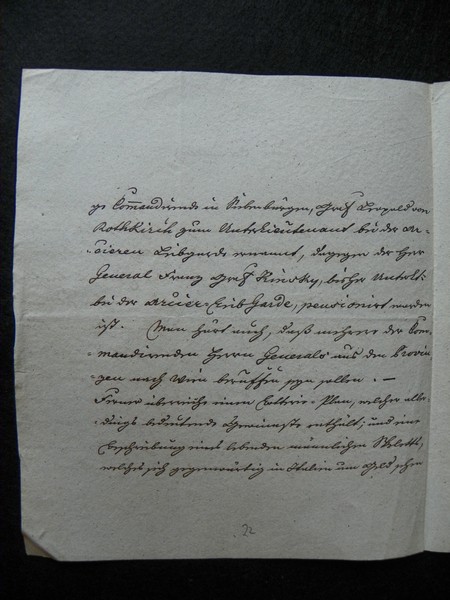 ge Commandirende in Siebenbürgen, Graf Leopold von
Rothkirch zum Unterlieutenant bei der Ar-
cieren Leibgarde ernannt, dagegen der Herr
General Franz Graf Kinsky, bisher Unterlt:
bei der Arcier-Leib Garde, pensionirt worden
ist. Man hört auch, daß mehrere der Com-
mandirenden Herrn Generals aus den Provin-
zen nach Wien beruffen seyn sollen. –
Ferner überreiche einen Lotterie-Plan, welcher aller-
dings bedeutende Gewinnste enthält; und eine
Beschreibung eines lebenden männlichen Skelette,
welches sich gegenwärtig in Italien um Geld sehen
22